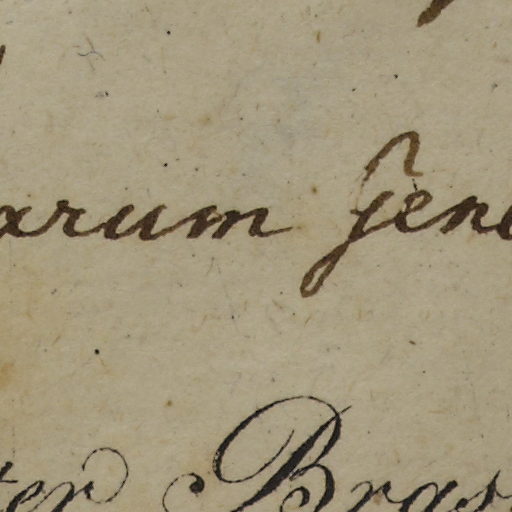 arum gene
ter Bras